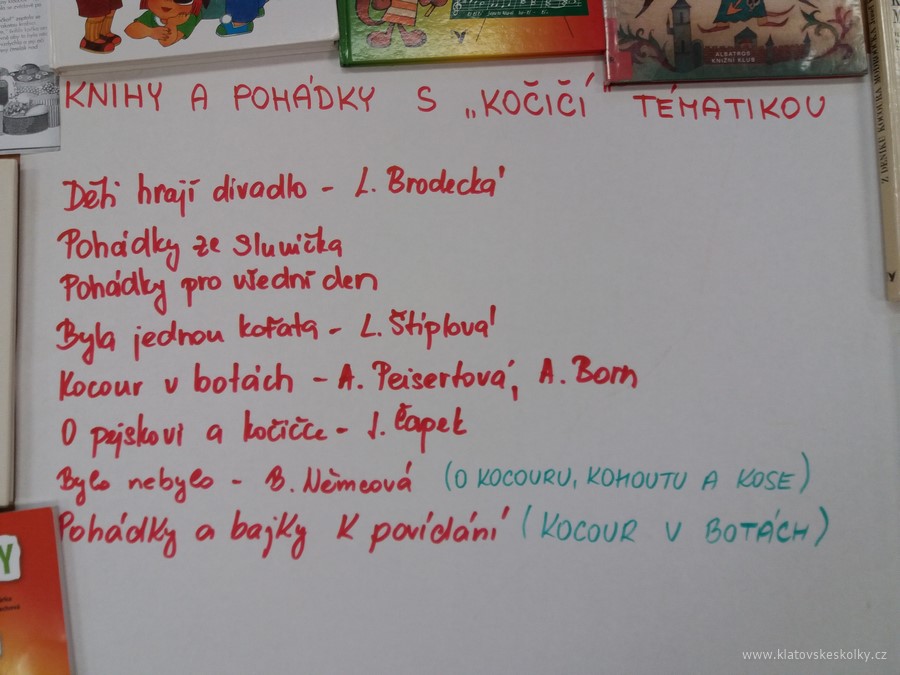 ALBATROS
KNIŽNÍ KLUB
KNIHY A POHÁDKY S „KOČIČÍ TÉMATIKOU
Z DENÍKU KOCOURA MODROOČKA
Děti hrají divadlo - L. Brodecká
Pohádky ze sluníčka
Pohádky pro všední den
Byla jednou koťata - L. Štíplová
Kocour v botách - A. Peisertová, A. Born
O pejskovi a kočičce - J. Čapek
Bylo nebylo - B. Němcová (O KOCOURU, KOHOUTU A KOSE)
Pohádky a bajky K povídání (KOCOUR V BOTÁCH)
Y
www.klatovskeskolky.cz